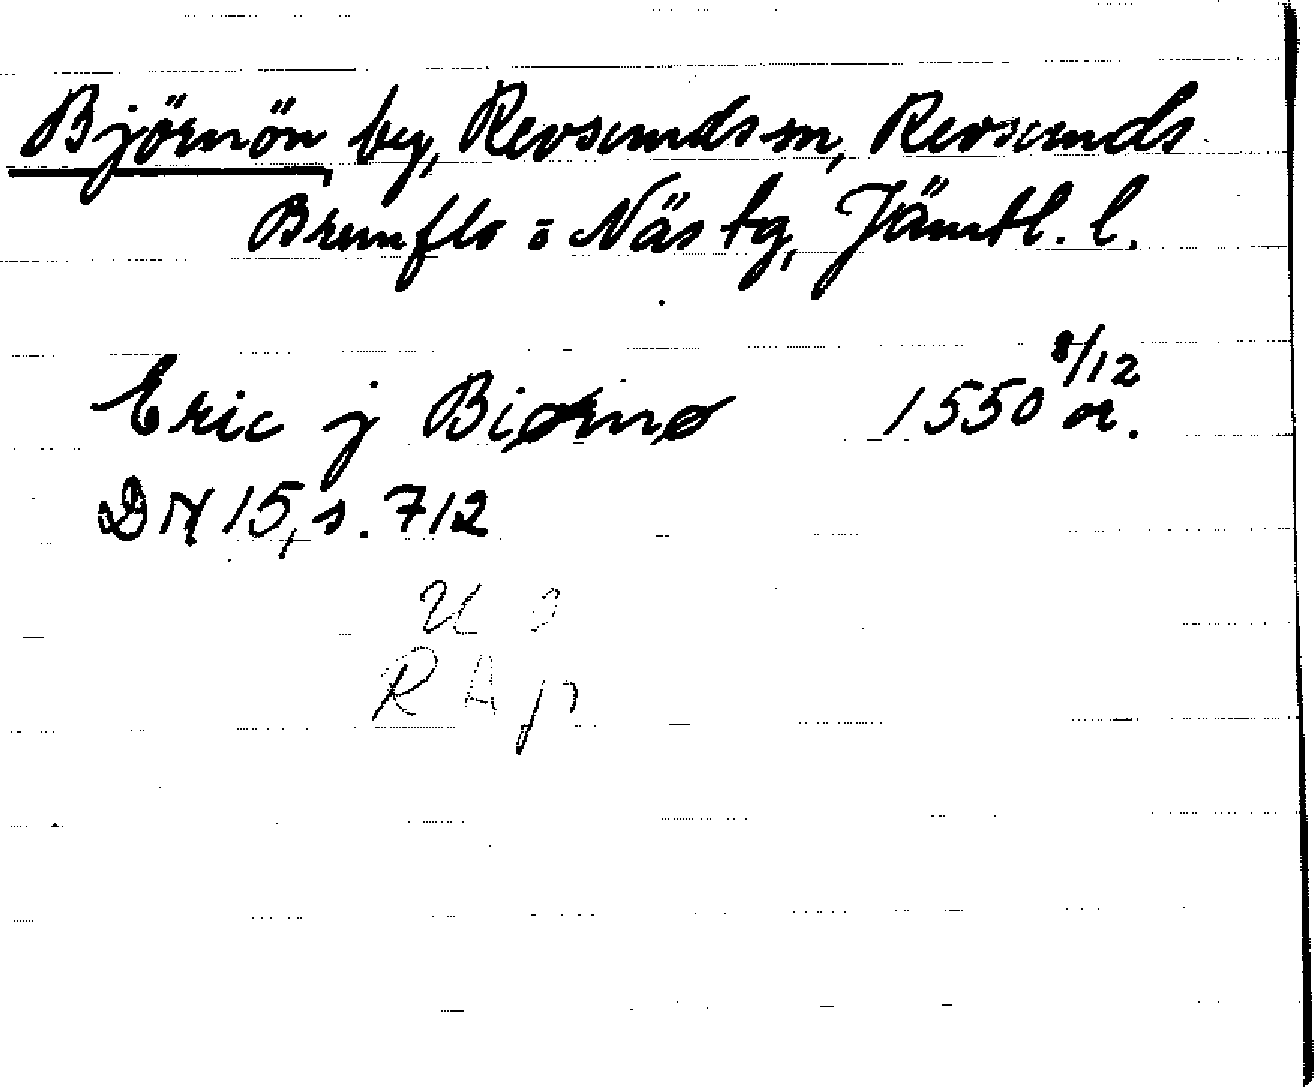 Björnön by, Revsunds sn, Revsunds
Brunflo o Näs tg, Jämtl. l.
Eric j Biørnø 1550 8/12 or.
DN 15, s. 712